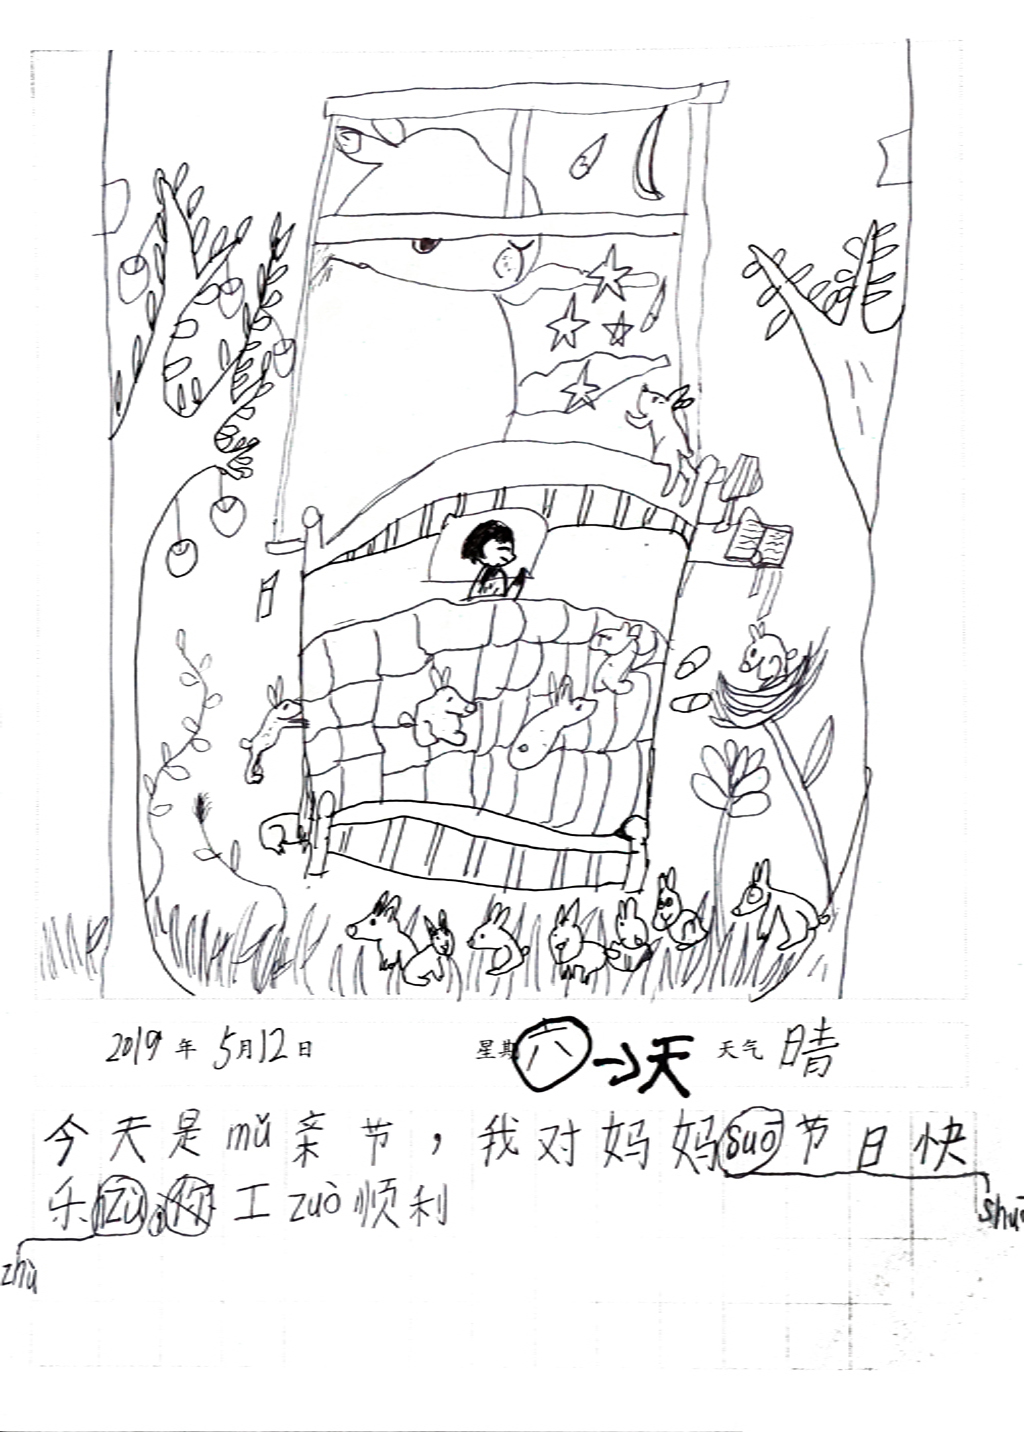 2019年5月12日 星期六→天 天气晴
今天是mǔ亲节，我对妈妈suō节日快
乐zù，你工zuò顺利
shuō
zhù